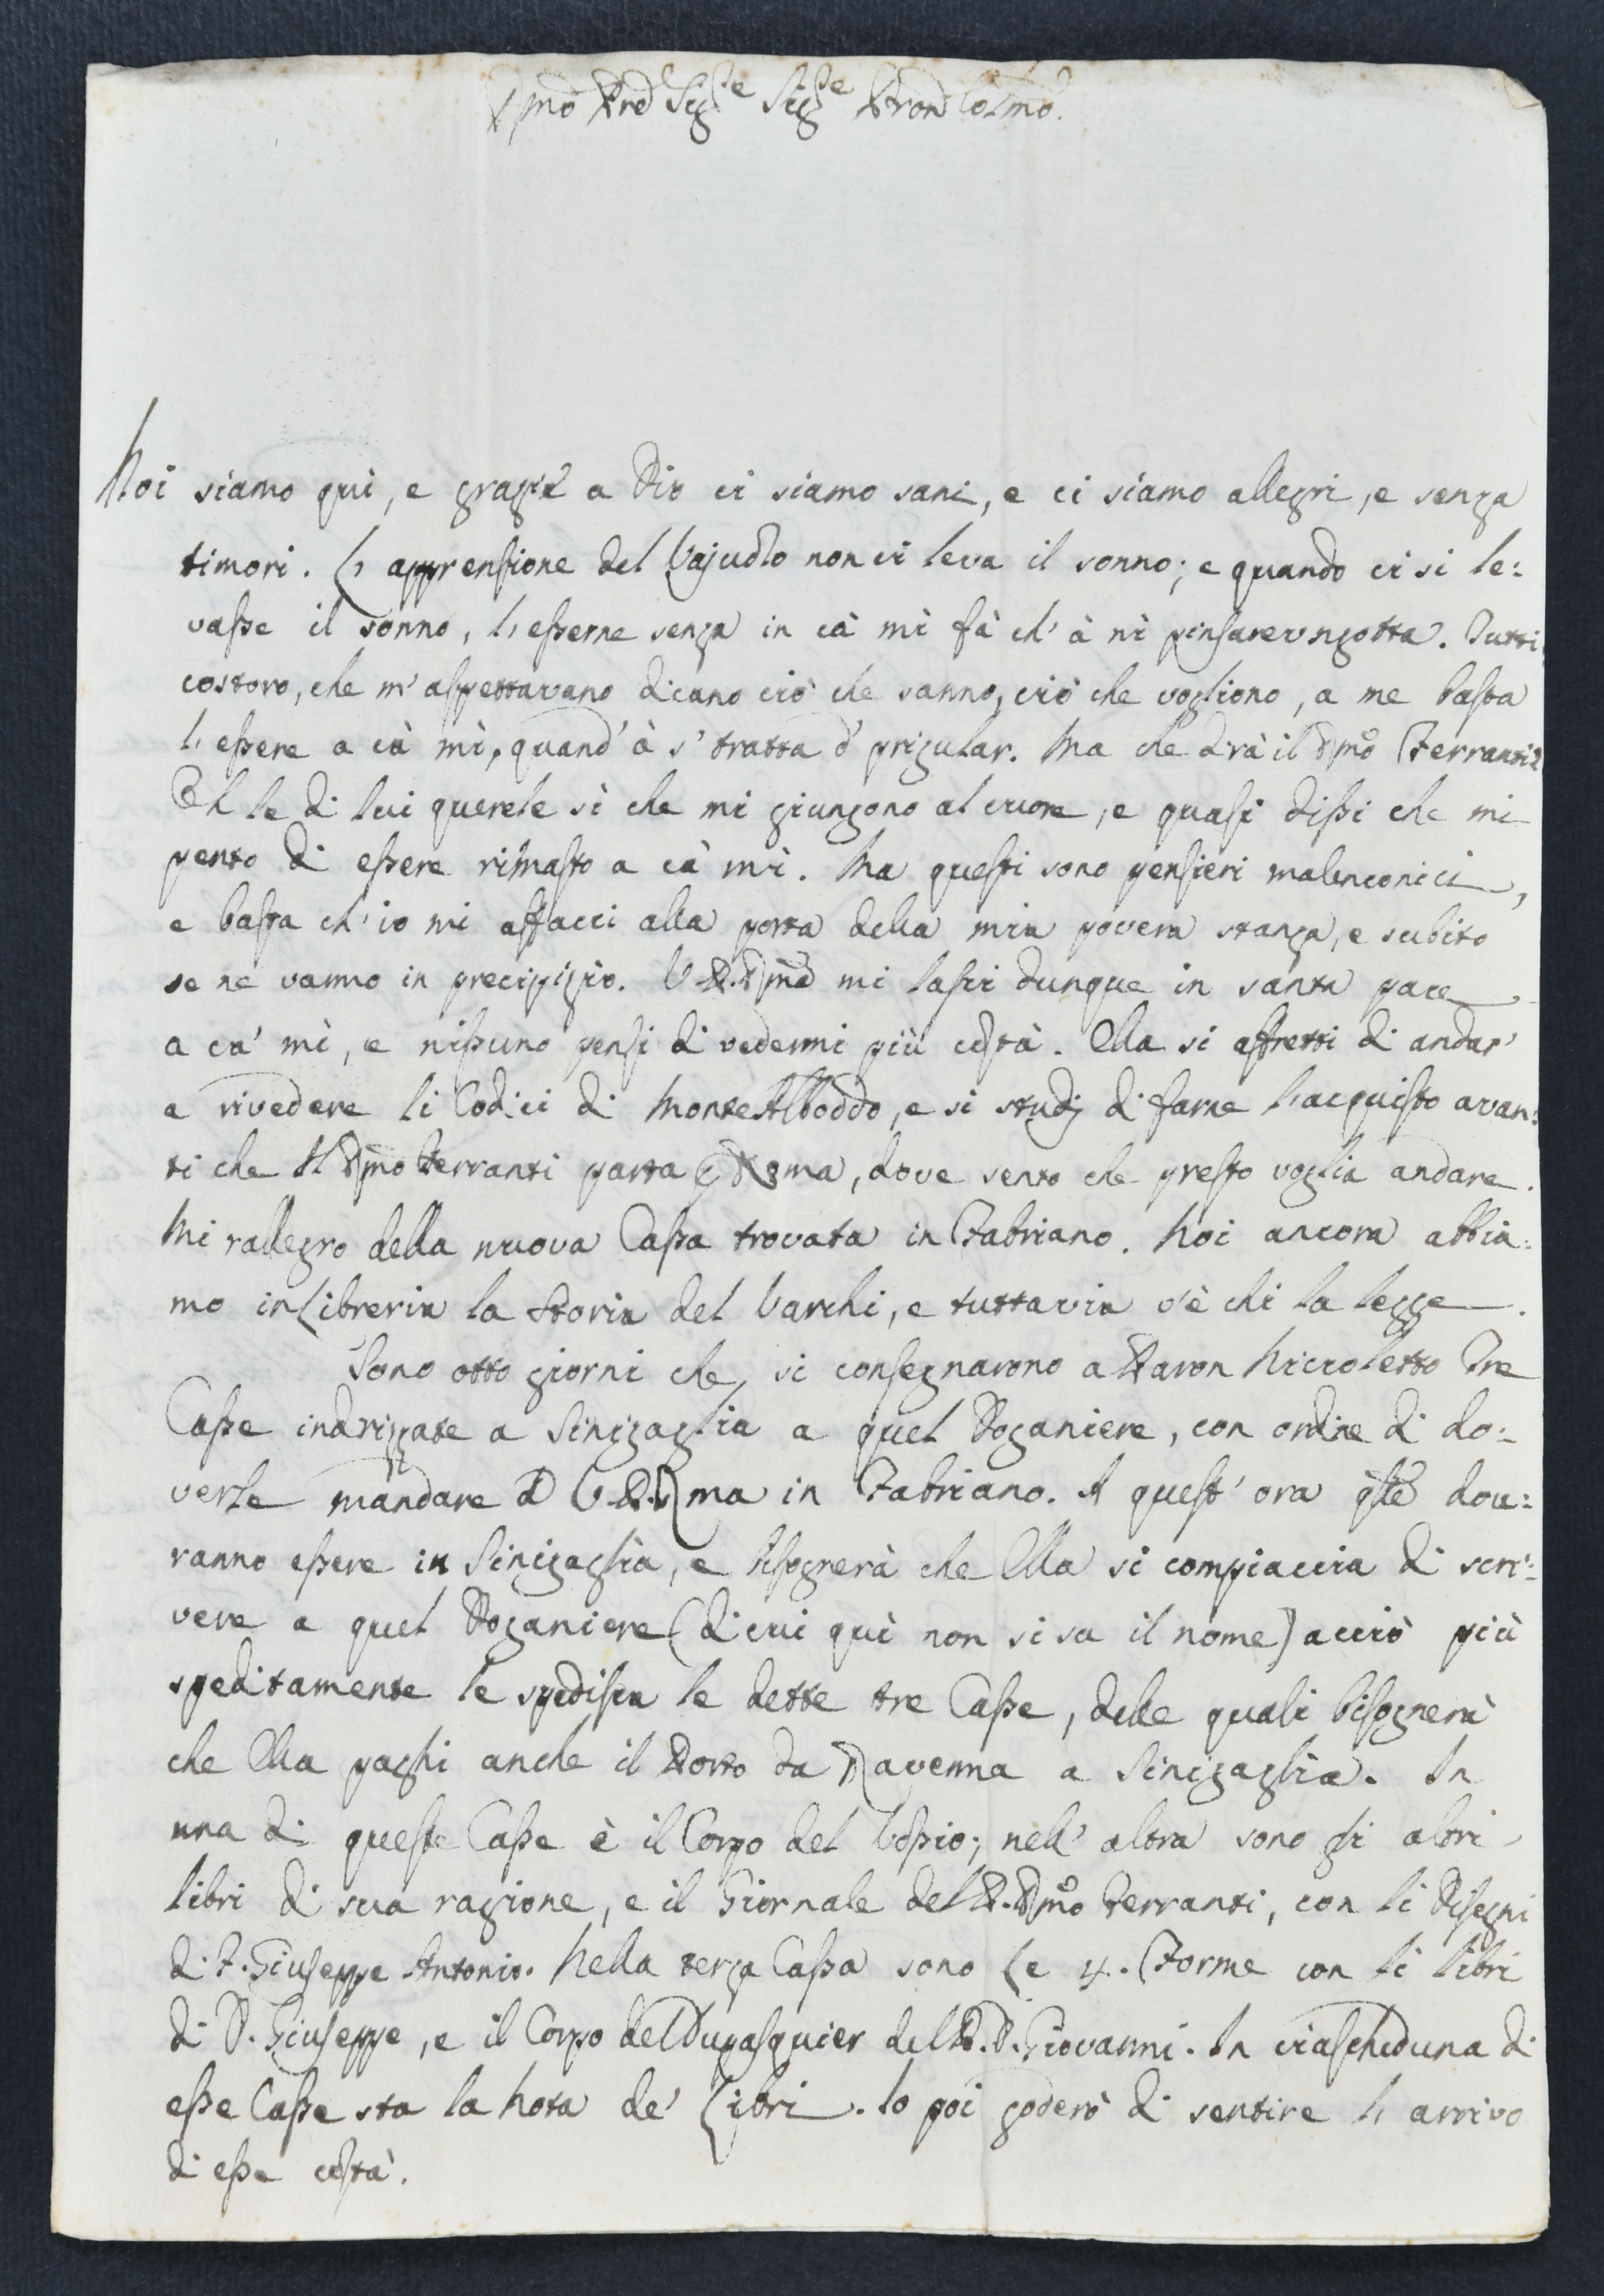 Rmo Pre Sige Sige Pron Colmo.
Noi siamo quì, e grazie a Dio ci siamo sani, e ci siamo allegri, e senza
timori. L'apprensione del Vajuolo non ci leva il sonno; e quando ci si le:
vasse il sonno, l'esserne senza in cà mì fà ch' à nì pinsare ungotta. Tutti
costoro, che m'aspettavano dicano ciò che sanno, ciò che vogliono, a me basta
l'essere a cà mì, quand' à s' tratta d' prigular. Ma che dirà il Rmo Ferranti?
Eh le di lui querele sì che mi giungono al cuore, e quasi dissi che mi
pento di essere rimasto a cà mì. Ma questi sono pensieri malenconici,
e basta ch' io mi affacci alla porta della mia povera stanza, e subito
se ne vanno in precipizio. V. P. Rma mi lasci dunque in santa pace
a ca' mì, e nissuno pensi di vedermi più costà. Ella si affretti di andar'
a rivedere li Codici di Monte Alboddo, e si studj di farne l'acquisto avan:
ti che il Rmo Ferranti parta p Roma, dove sento che presto voglia andare.
Mi rallegro della nuova Cassa trovata in Fabriano. Noi ancora abbia:
mo in Libreria la Storia del Varchi, e tuttavia v'è chi la legge.
Sono otto giorni che si consegnarono a Paron Niccoletto Tre
Casse indrizzate a Sinigaglia a quel Doganiere, con ordine di do:
verle mandare a V. P. Rma in Fabriano. A quest' ora qste dov:
ranno essere in Sinigaglia, e bisognerà che Ella si compiaccia di scri:
vere a quel Doganiere (di cui quì non si sa il nome) acciò più
speditamente le spedisca le dette tre Casse, delle quali bisognerà
che Ella paghi anche il Porto da Ravenna a Sinigaglia. In
una di queste Casse è il Corpo del Vossio; nell' altra sono gli altri
libri di sua ragione, e il Giornale del P. Rmo Ferranti, con li Disegni
di F. Giuseppe Antonio. Nella terza Cassa sono le 4. Forme con li libri
di D. Giuseppe, e il Corpo del Dupasquier del P. D. Giovanni. In ciascheduna di
esse Casse sta la Nota de' Libri. Io poi goderò di sentire l'arrivo
di esse costà.